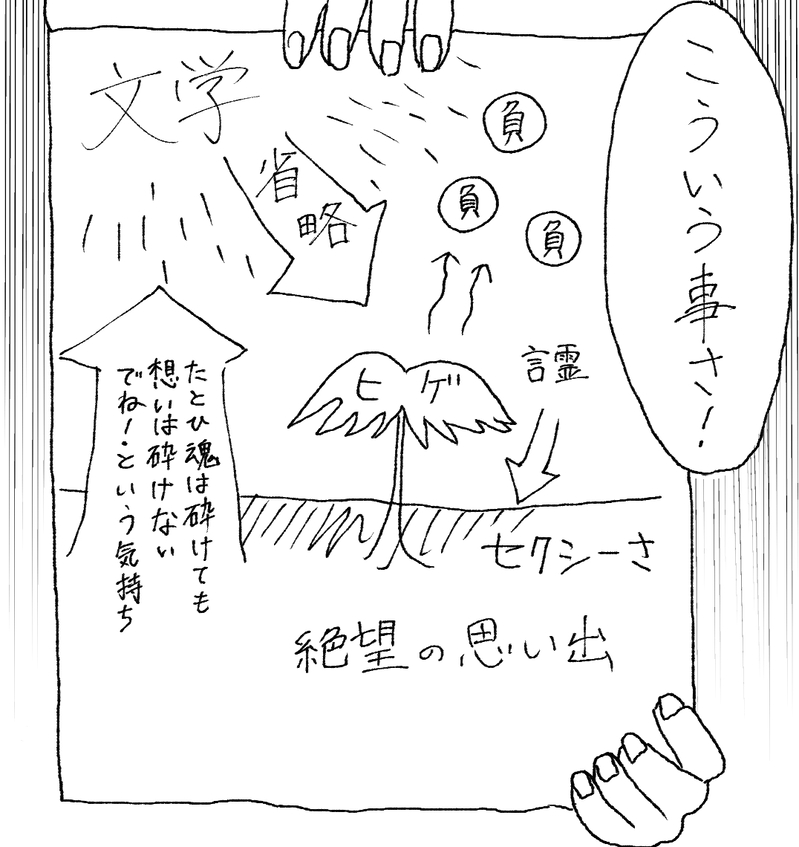 こういう事さ!
文学
省略
負
負
負
ヒゲ
言霊
たとひ魂は砕けても
想いは砕けない
でね!という気持ち
セクシーさ
絶望の思い出